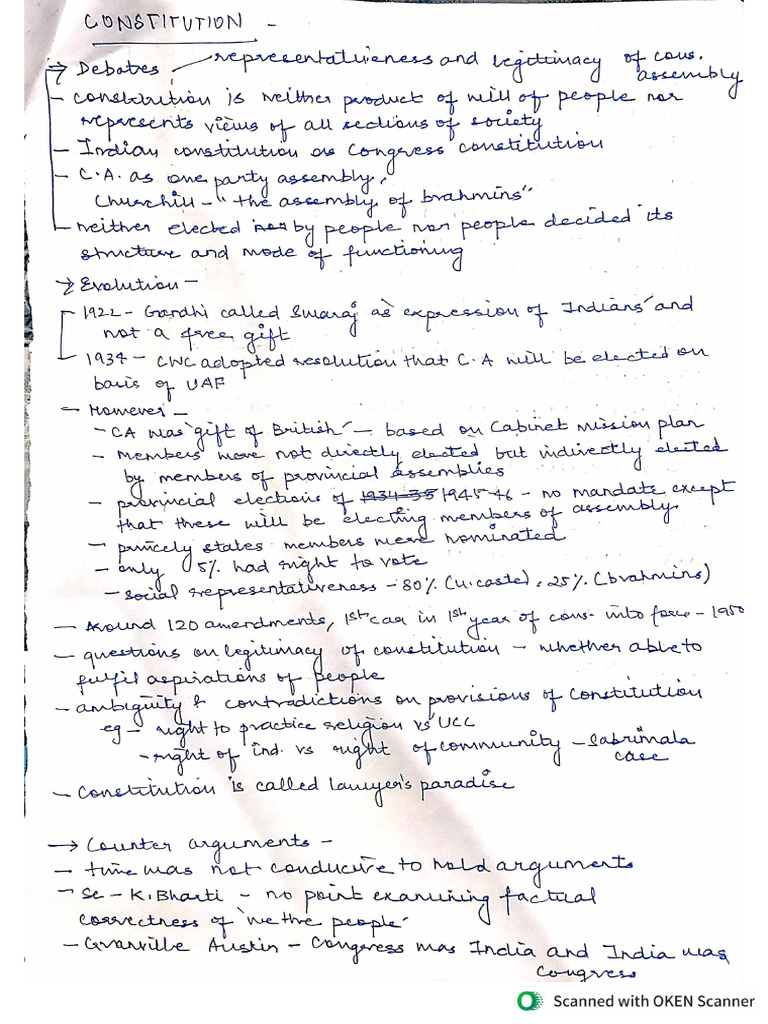 CONSTITUTION -
→ Debates - representativeness and legitimacy of cons. assembly
- constitution is neither product of will of people nor
represents views of all sections of society
- Indian constitution as Congress constitution
- C.A. as one party assembly,
Churchill - "the assembly of brahmins"
- neither elected by people nor people decided its
structure and mode of functioning
→ Evolution -
1922 - Gandhi called Swaraj as expression of Indians and
not a free gift
- 1934 - CWC adopted resolution that C.A will be elected on
basis of UAF
- However -
- CA was 'gift of British' - based on Cabinet mission plan
- members were not directly elected but indirectly elected
by members of provincial assemblies
- provincial elections of 1934-35 1945-46 - no mandate except
that these will be electing members of assembly
- princely states members were nominated
- only 15% had right to vote
- social representativeness - 80% (u.caste), 25% (brahmins)
- Around 120 amendments, 1st caa in 1st year of cons. into force - 1950
- questions on legitimacy of constitution - whether able to
fulfil aspirations of people
- ambiguity & contradictions on provisions of Constitution
eg - right to practice religion vs UCC
- right of ind. vs right of community - Sabrimala
case
- Constitution is called lawyer's paradise
→ Counter arguments -
- time was not conducive to hold arguments
- SC - K. Bharti - no point examining factual
correctness of 'we the people'
- Granville Austin - Congress was India and India was
Congress
Scanned with OKEN Scanner